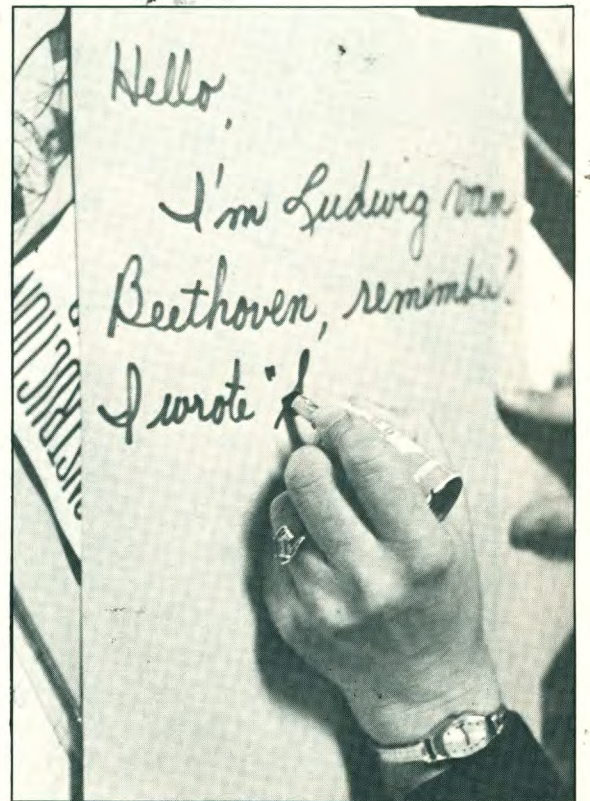 Hello,
I'm Ludwig van
Beethoven, remember?
I wrote "